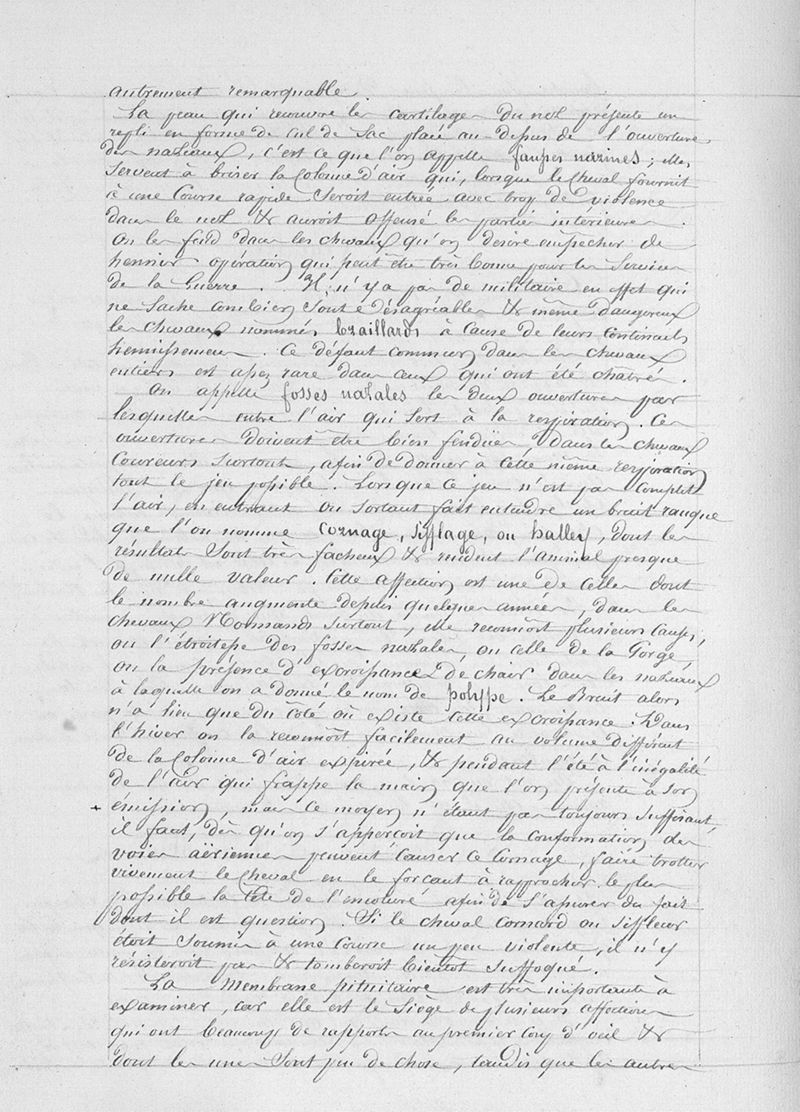 autrement remarquable.
La peau qui recouvre les cartilages du nez présente un
repli en forme de cul de Sac placé au dessus de l'ouverture
des nazeaux, c'est ce que l'on appelle fausses narines ; elles
servent à briser la Colonne d'air qui, lorsque le Cheval fournit
à une Course rapide seroit entrée avec trop de violence
dans le nez & auroit offensé les parties intérieures.
On les fend dans les chevaux qu'on désire empêcher de
hennir opération qui peut être très bonne pour le Service
de la Guerre. Il n'y a pas de militaire en effet qui
ne Sache combien Sont désagréables & même dangereux
les chevaux nommés braillards à cause de leurs continuels
hennissemens. Ce défaut commun dans les chevaux
entiers est assez rare dans ceux qui ont été châtrés.
On appelle fosses nazales les deux ouvertures par
lesquelles entre l'air qui sert à la respiration. Ces
ouvertures doivent être bien fendües, dans les chevaux
Coureurs surtout, afin de donner à cette même respiration
tout le jeu possible. Lorsque ce jeu n'est pas complet
l'air, en entrant ou sortant fait entendre un bruit rauque
que l'on nomme cornage, sifflage, ou halley, dont les
résultats Sont très facheux & rendent l'animal presque
de nulle valeur. Cette affection est une de celles dont
le nombre augmente depuis quelques années, dans les
chevaux Normands surtout, elle reconnoit plusieurs causes,
ou l'étroitesse des fosses nazales, ou celle de la Gorge,
ou la présence d'excroissances de chair dans les nazeaux
à laquelle on a donné le nom de polype. Le Bruit alors
n'a lieu que du côté où existe cette excroissance. Dans
l'hiver on la reconnoît facilement au volume différent
de la Colonne d'air expirée, & pendant l'été à l'inégalité
de l'air qui frappe la main que l'on présente à son
+ émission, mais ce moyen n'étant pas toujours suffisant,
il faut, dès qu'on s'apperçoit que la conformation des
voies aëriennes peuvent causer ce Cornage, faire trotter
vivement le Cheval en le forçant à rapprocher le plus
possible la tête de l'encolure afin de S'assurer du fait
dont il est question. Si le cheval cornard ou Siffleur
étoit Soumis à une course un peu violente, il n'y
résisteroit pas & tomberoit bientôt suffoqué.
La membrane pituitaire est très importante à
examiner, car elle est le Siège de plusieurs affections
qui ont beaucoup de rapports au premier coup d'œil &
dont les unes Sont peu de chose, tandis que les autres